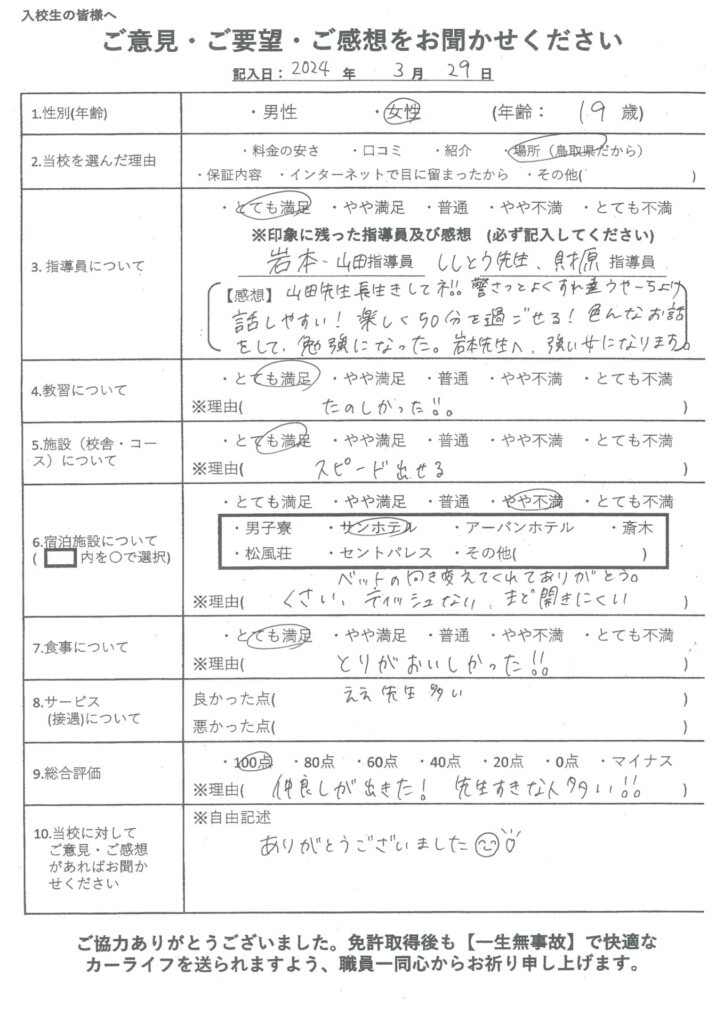 入校生の皆様へ
ご意見・ご要望・ご感想をお聞かせください
記入日：2024 年 3 月 29 日
1.性別(年齢) ・男性 ・女性 (年齢： 19 歳)
2.当校を選んだ理由 ・料金の安さ ・口コミ ・紹介 ・場所（鳥取県だから）
・保証内容 ・インターネットで目に留まったから ・その他( )
3. 指導員について ・とても満足 ・やや満足 ・普通 ・やや不満 ・とても不満
※印象に残った指導員及び感想 (必ず記入してください)
岩本・山田指導員 ししとう先生、貝原 指導員
【感想】 山田先生長生きしてネ!! 警さつとよくすれ違うやーちより
話しやすい！ 楽しく50分を過ごせる！ 色んなお話
をして、勉強になった。岩本先生へ、強い女になります。
4.教習について ・とても満足 ・やや満足 ・普通 ・やや不満 ・とても不満
※理由( たのしかった!!。 )
5.施設（校舎・コー
ス）について ・とても満足 ・やや満足 ・普通 ・やや不満 ・とても不満
※理由( スピード出せる )
6.宿泊施設について
( 内を○で選択) ・とても満足 ・やや満足 ・普通 ・やや不満 ・とても不満
・男子寮 ・サンホテル ・アーバンホテル ・斎木
・松風荘 ・セントパレス ・その他( )
ベットの向き変えてくれてありがとう。
※理由( くさい、ティッシュない、まど開きにくい )
7.食事について ・とても満足 ・やや満足 ・普通 ・やや不満 ・とても不満
※理由( とりがおいしかった!! )
8.サービス
(接遇)について 良かった点( ええ先生多い )
悪かった点( )
9.総合評価 ・100点 ・80点 ・60点 ・40点 ・20点 ・0点 ・マイナス
※理由( 仲良しが出きた！ 先生すきな人多い!! )
10.当校に対して
ご意見・ご感想
があればお聞か
せください ※自由記述
ありがとうございました
ご協力ありがとうございました。免許取得後も【一生無事故】で快適な
カーライフを送られますよう、職員一同心からお祈り申し上げます。